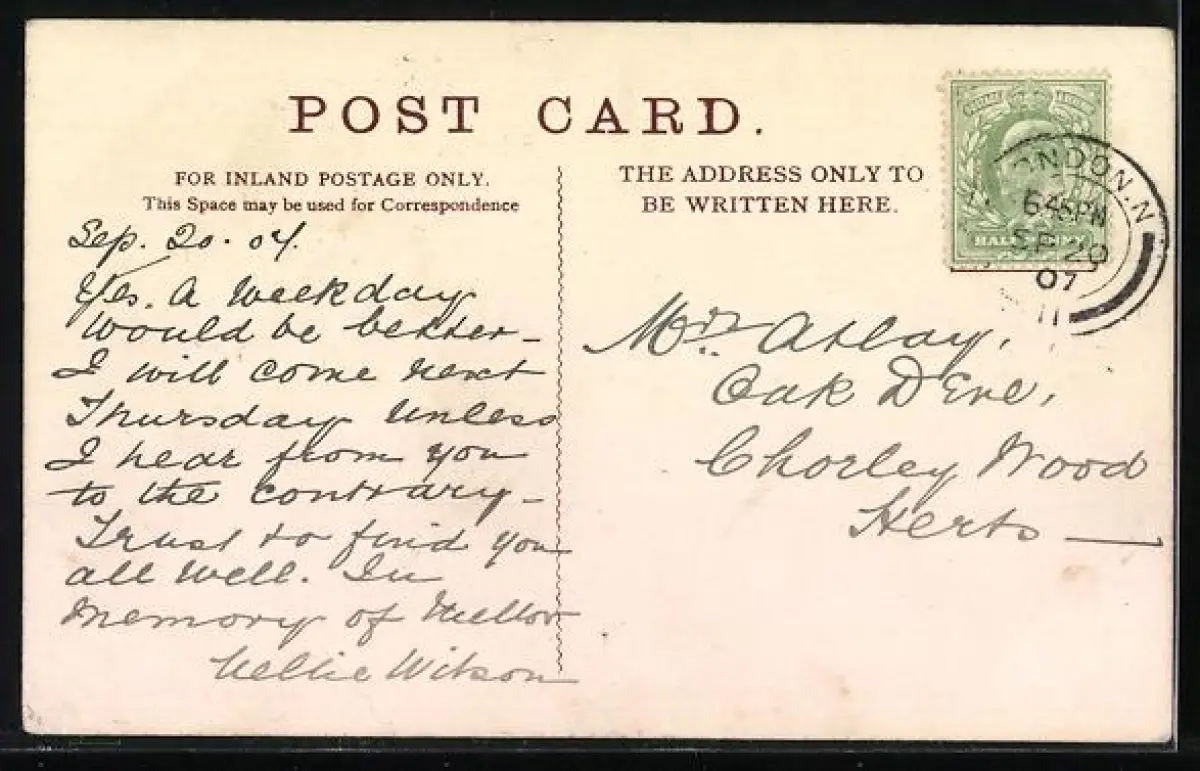 POST CARD.
FOR INLAND POSTAGE ONLY.
This Space may be used for Correspondence
THE ADDRESS ONLY TO
BE WRITTEN HERE.
Sep. 20. 07.
Yes. A weekday
would be better –
I will come next
Thursday unless
I hear from you
to the contrary –
Trust to find you
all well. In
memory of
Nellie Wilson
HALFPENNY
LONDON.N
6.45PM
SP 20
07
11
Mrs. Atlay,
Oak D Ene,
Chorley Wood
Herts —